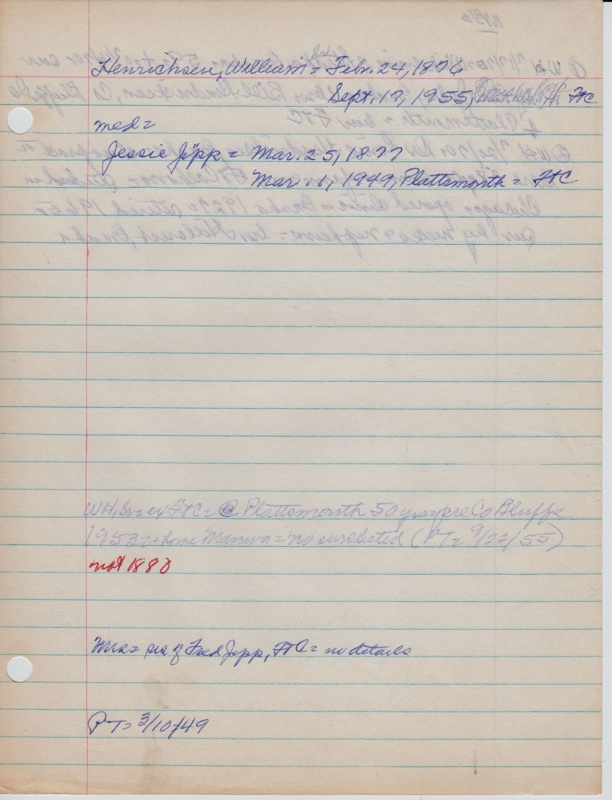 Henrichsen, William = Feb. 24, 1876
Sept. 17, 1955, FtC
med =
Jessie Jipp = Mar. 25, 1877
Mar. 1, 1949, Plattsmouth = FtC
WH, Sr = ex FtC = @ Plattsmouth 50 yrs = pre Co Bluffs
1953 = home Manwa = no surv listed (PT = 9/22/55)
not 1880
Mrs = sis of Fred Jipp, FtC = no details
PT = 3/10/49